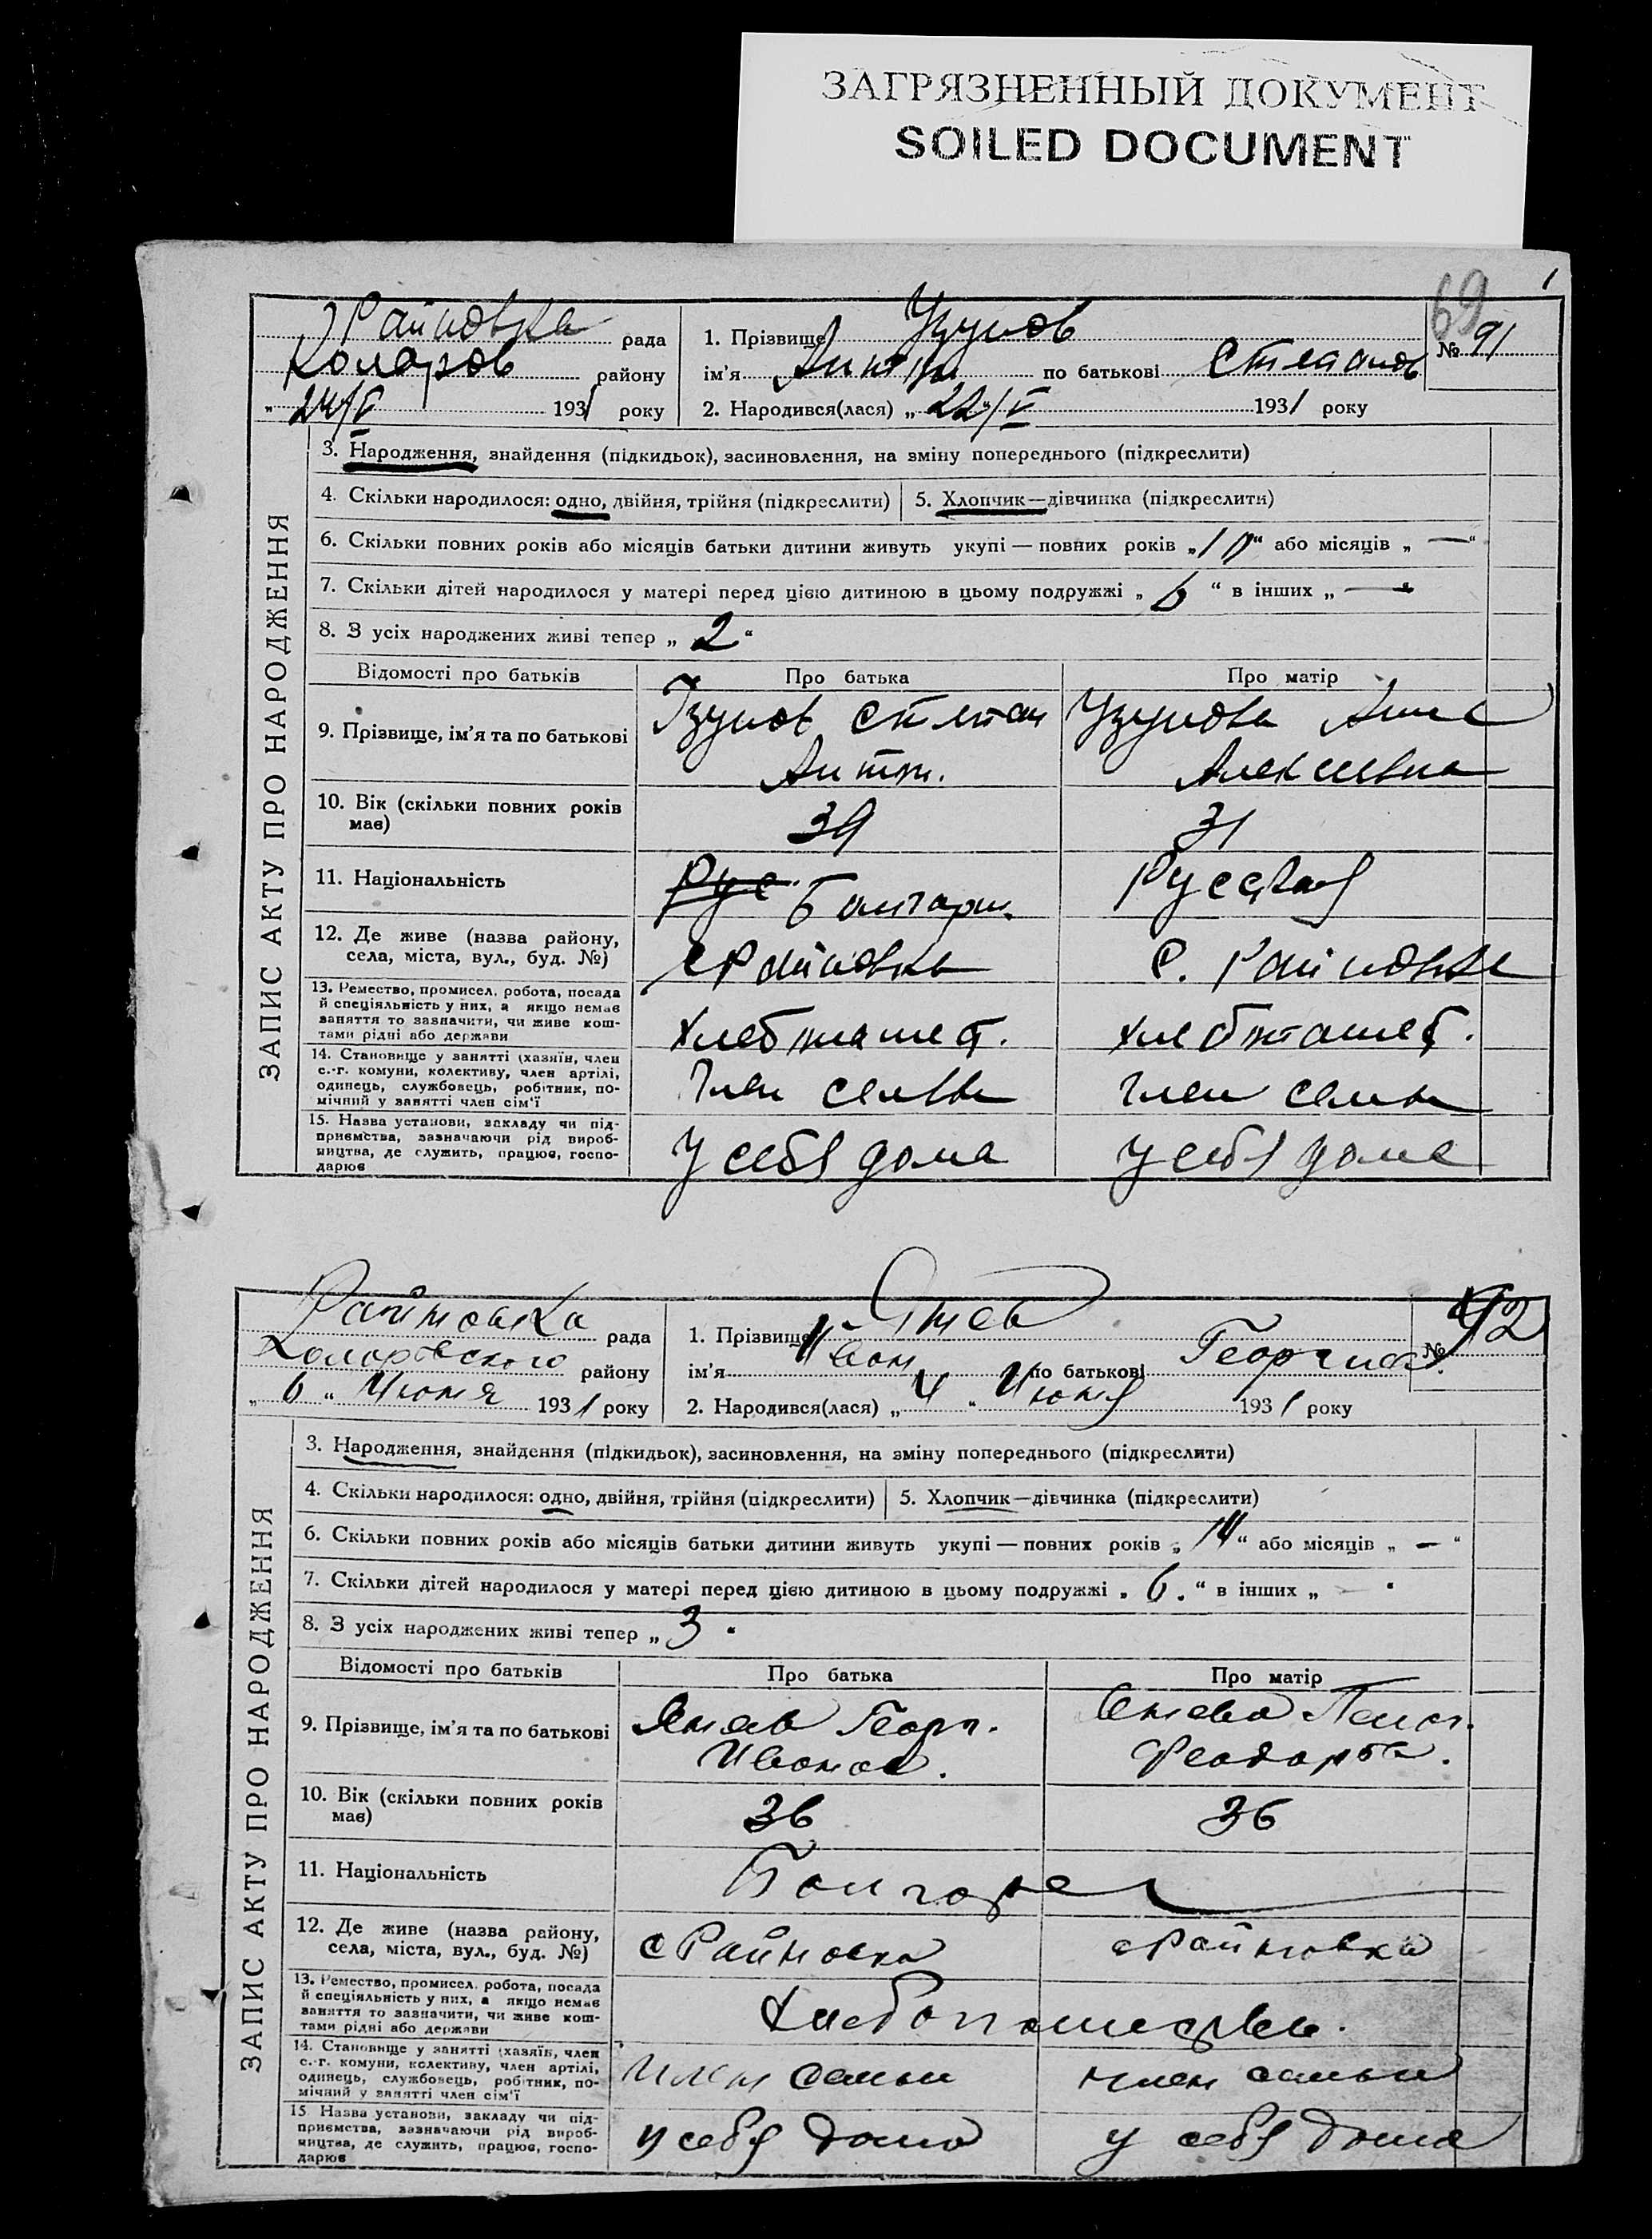 ЗАГРЯЗНЕННЫЙ ДОКУМЕНТ
SOILED DOCUMENT
1
69
Райновка рада
Коларов району
„ 24/V 1931 року
1. Прізвище Узунов
ім'я по батькові Степанов
2. Народився(лася) „ 22 “/V 1931 року
№ 91
ЗАПИС АКТУ ПРО НАРОДЖЕННЯ
3. Народження, знайдення (підкидьок), засиновлення, на зміну попереднього (підкреслити)
4. Скільки народилося: одно, двійня, трійня (підкреслити)
5. Хлопчик—дівчинка (підкреслити)
6. Скільки повних років або місяців батьки дитини живуть укупі — повних років „ “ або місяців „ — “
7. Скільки дітей народилося у матері перед цією дитиною в цьому подружжі „ 6 “ в інших „ — “
8. З усіх народжених живі тепер „ 2 “
Відомості про батьків Про батька Про матір
9. Прізвище, ім'я та по батькові
Узунов Степан
Антон.
Узунова Анна
Алексеевна
10. Вік (скільки повних років
має)
39 31
11. Національність
Рус. Болгарин. Русская
12. Де живе (назва району,
села, міста, вул., буд. №)
с Райновка с. Райновка
13. Ремество, промисел, робота, посада
й спеціяльність у них, а якщо немає
заняття то зазначити, чи живе кош-
тами рідні або держави
Хлебопашест. хлебопашест.
14. Становище у занятті (хазяїн, член
с.-г. комуни, колективу, член артілі,
одинець, службовець, робітник, по-
мічний у занятті член сім'ї
Член семьи член семьи
15. Назва установи, закладу чи під-
приємства, зазначаючи рід вироб-
ництва, де служить, працює, госпо-
дарює
У себя дома у себя дома
Райновка рада
Коларовского району
„ 6 “ Июня 1931 року
1. Прізвище Янев
ім'я Иван по батькові Георгиев.
2. Народився(лася) „ 4 “ Июня 1931 року
№ 92
ЗАПИС АКТУ ПРО НАРОДЖЕННЯ
3. Народження, знайдення (підкидьок), засиновлення, на зміну попереднього (підкреслити)
4. Скільки народилося: одно, двійня, трійня (підкреслити)
5. Хлопчик—дівчинка (підкреслити)
6. Скільки повних років або місяців батьки дитини живуть укупі — повних років „ 14 “ або місяців „ — “
7. Скільки дітей народилося у матері перед цією дитиною в цьому подружжі „ 6. “ в інших „
8. З усіх народжених живі тепер „ 3 “
Відомості про батьків Про батька Про матір
9. Прізвище, ім'я та по батькові
Янев Георг.
Иванов.
Янева
Феодоров.
10. Вік (скільки повних років
має)
36 36
11. Національність
Болгаре
12. Де живе (назва району,
села, міста, вул., буд. №)
с Райновка с Райновка
13. Ремество, промисел, робота, посада
й спеціяльність у них, а якщо немає
заняття то зазначити, чи живе кош-
тами рідні або держави
14. Становище у занятті (хазяїн, член
с.-г. комуни, колективу, член артілі,
одинець, службовець, робітник, по-
мічний у занятті член сім'ї
член семьи член семьи
15 Назва установи, закладу чи під-
приємства, зазначаючи рід вироб-
ництва, де служить, працює, госпо-
дарює
у себя дома у себя дома